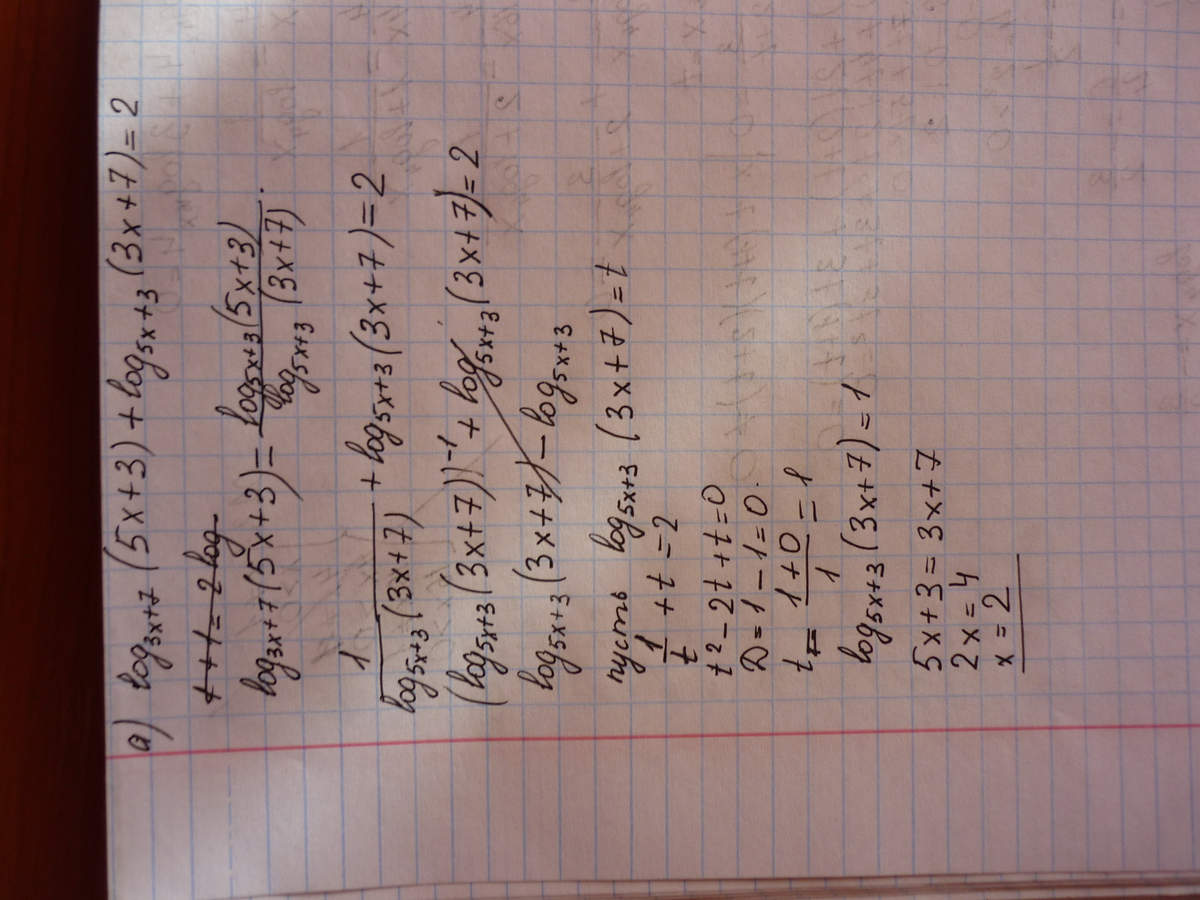 а) log₃ₓ₊₇(5x+3) + log₅ₓ₊₃(3x+7) = 2
t + 1 = 2 log
log₃ₓ₊₇(5x+3) = log₅ₓ₊₃(5x+3) / log₅ₓ₊₃(3x+7).
1 / log₅ₓ₊₃(3x+7) + log₅ₓ₊₃(3x+7) = 2
(log₅ₓ₊₃(3x+7))⁻¹ + log₅ₓ₊₃(3x+7) = 2
log₅ₓ₊₃(3x+7) − log₅ₓ₊₃
пусть log₅ₓ₊₃(3x+7) = t
1/t + t = 2
t² − 2t + t = 0
D = 1 − 1 = 0.
t = (1+0)/1 = 1
log₅ₓ₊₃(3x+7) = 1
5x+3 = 3x+7
2x = 4
x = 2